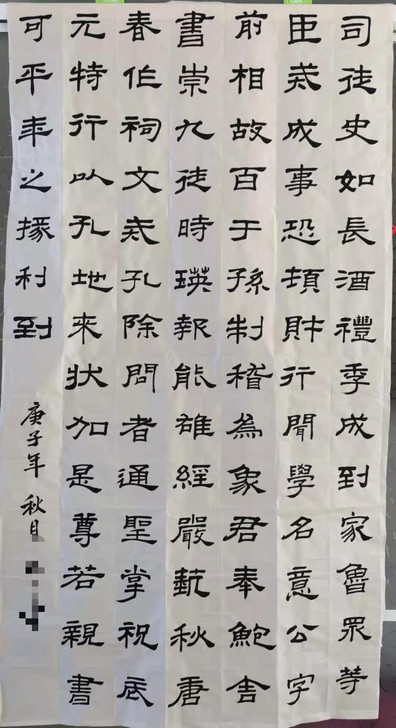 司徒史如長酒禮季成到家魯眾等
臣戒成事恐頓財行聞學名意公字
前相故百于孫制稽為象君奉鮑舍
書崇九徒時瑛報能雄經嚴藝秋唐
春作祠文戒孔除問者通聖掌祝辰
元特行以孔地來狀加是尊若親書
可平年之掾利到
庚子年 秋月